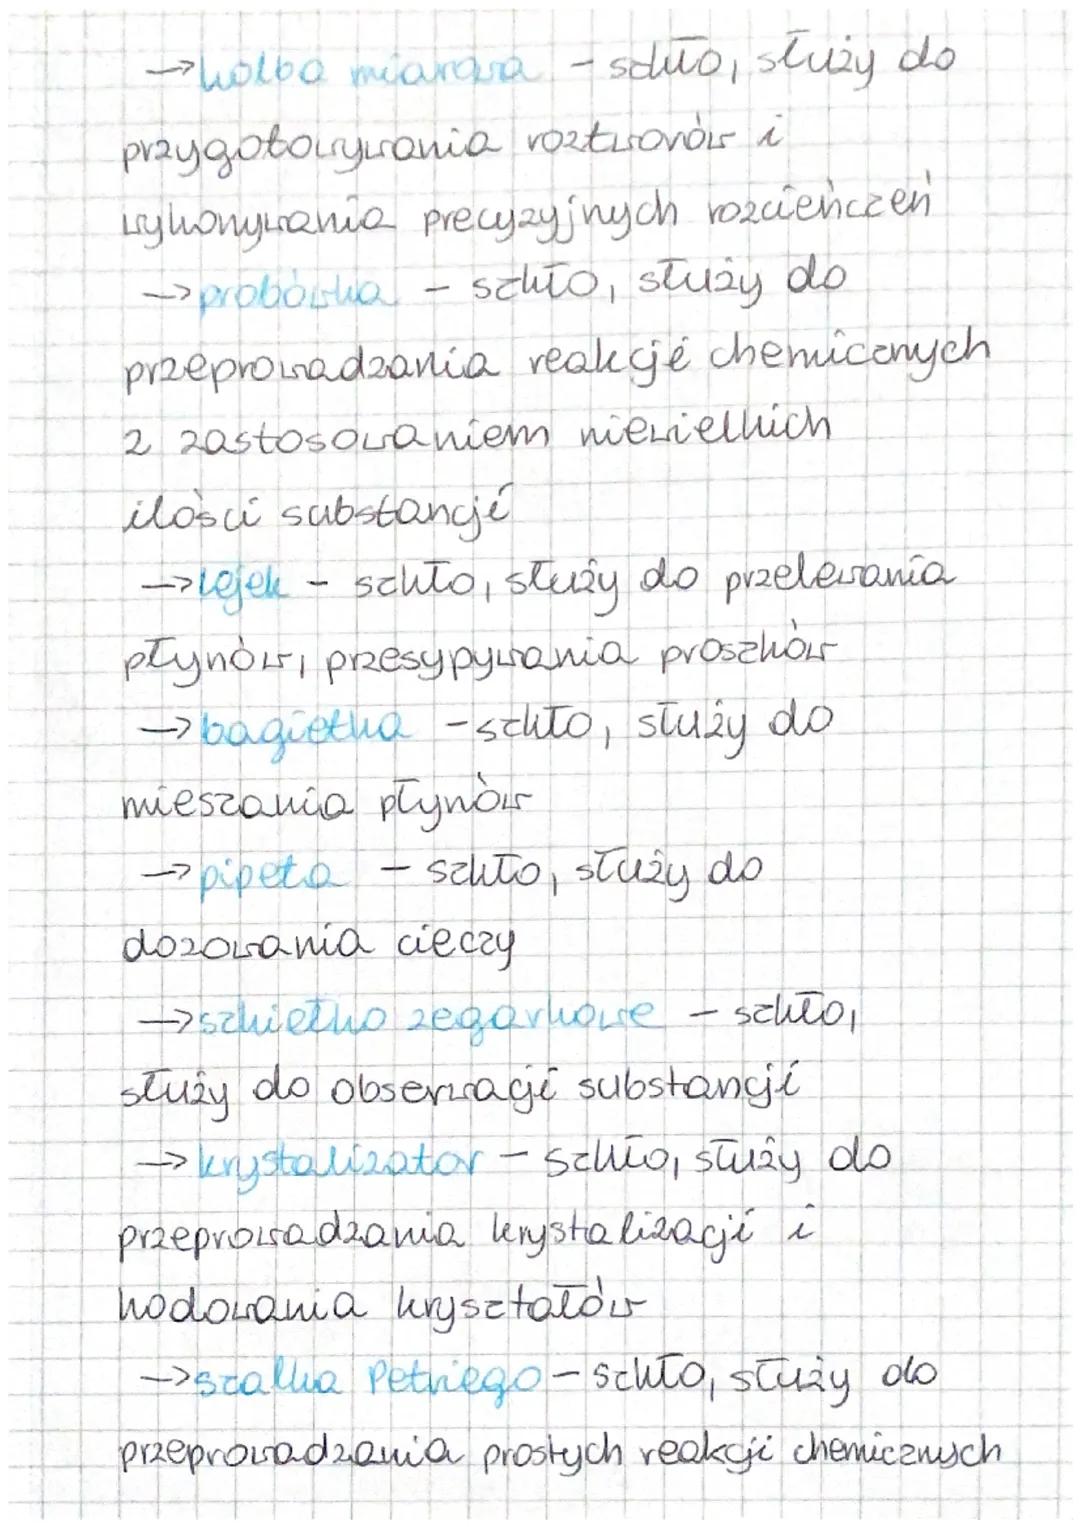 →kolba miarowa - szkło, służy do
przygotowywania roztworów i
wykonywania precyzyjnych rozcieńczeń
→probówka - szkło, służy do
przeprowadzania reakcji chemicznych
z zastosowaniem niewielkich
ilości substancji
→lejek - szkło, służy do przelewania
płynów, przesypywania proszków
→bagietka - szkło, służy do
mieszania płynów
→pipeta - szkło, służy do
dozowania cieczy
→szkiełko zegarkowe - szkło,
służy do obserwacji substancji
→krystalizator - szkło, służy do
przeprowadzania krystalizacji i
hodowania kryształów
→szalka Petriego - szkło, służy do
przeprowadzania prostych reakcji chemicznych